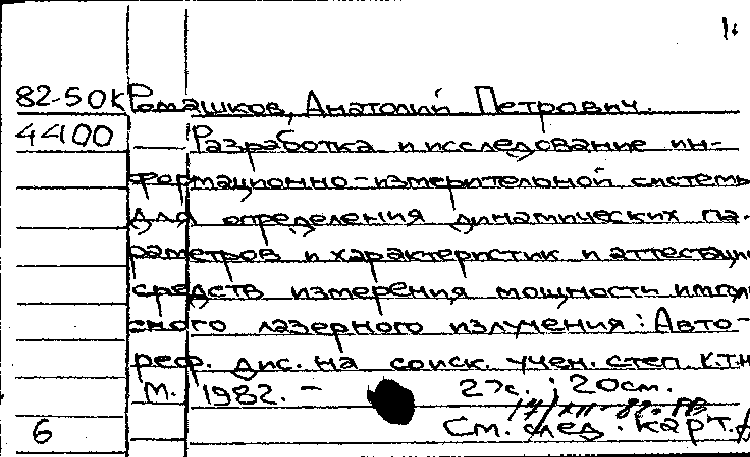 1.
82-50к Ромашков, Анатолий Петрович.
4400 Разработка и исследование ин-
формационно-измерительной системы
для определения динамических па-
раметров и характеристик и аттестации
средств измерения мощности импуль
сного лазерного излучения: Авто-
реф. дис. на соиск. учен. степ. к.т.н
М. 1982. - 27с.; 20см.
6 См. след. карт.